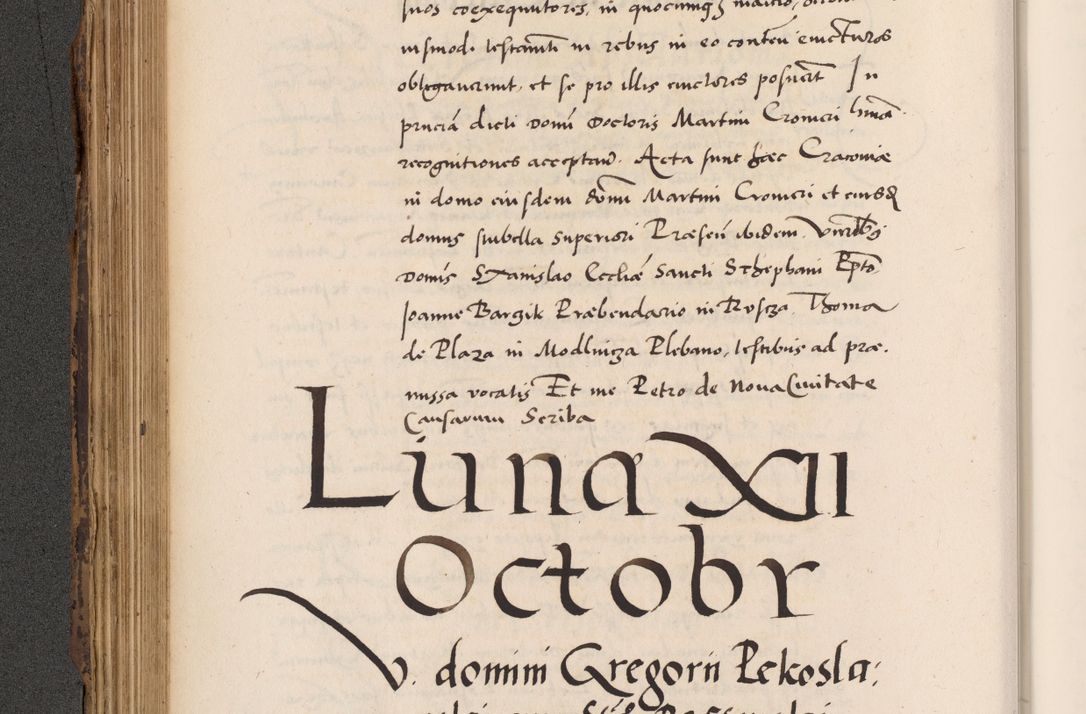 suos coexequutores, in quocumq
iusmodi testamti in rebus in eo conten euicturos
obligauerunt, et se pro illis euictores posuert In
pnciá dicti Domi Doctoris Martini Cromeri hmoi
recognitiones acceptand. Acta sunt haec Cracouiae
in domo eiusdem domi Martini Cromeri et eiusd
domus stubella superiori Praesen ibidem
Domis Stanislao Eccliae Sancti Sthephani
Joanne Barzik Praebendario in Thoma
de Plaza in Modlnicza Plebano, testibus ad prae.
missa vocatis Et me Petro de Noua Ciuitate
Causarum Scriba
Lunae XII
Octobr
V. domini Gregorii Pekosla: